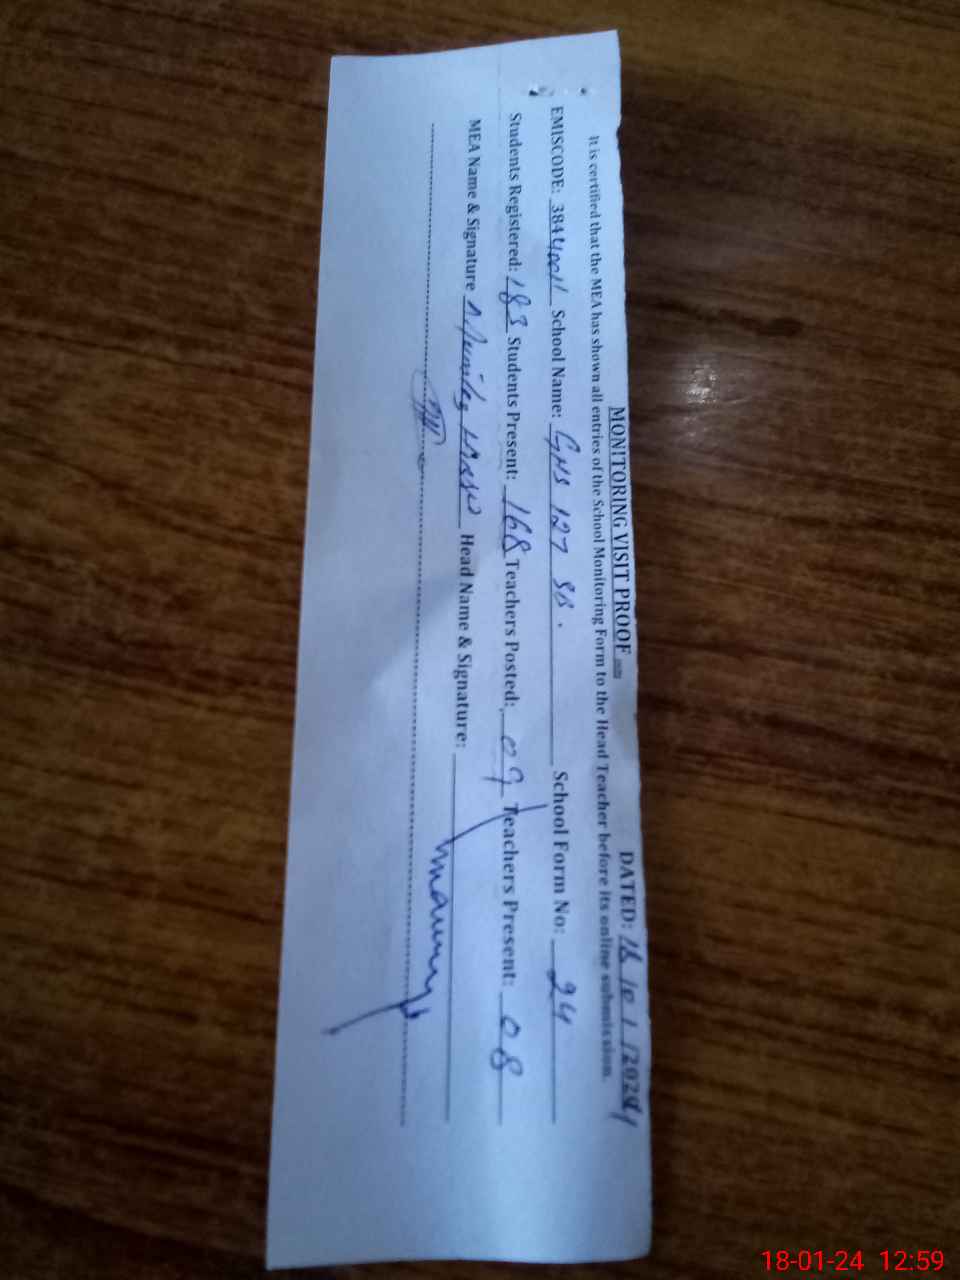 MONITORING VISIT PROOF DATED: 18/01/2024
It is certified that the MEA has shown all entries of the School Monitoring Form to the Head Teacher before its online submission.
EMISCODE: 38440011 School Name: GHS 127 SB. School Form No: 24
Students Registered: 183 Students Present: 168 Teachers Posted: 09 Teachers Present: 08
MEA Name & Signature Head Name & Signature:
18-01-24 12:59